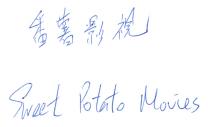 番薯影視
Sweet Potato Movies